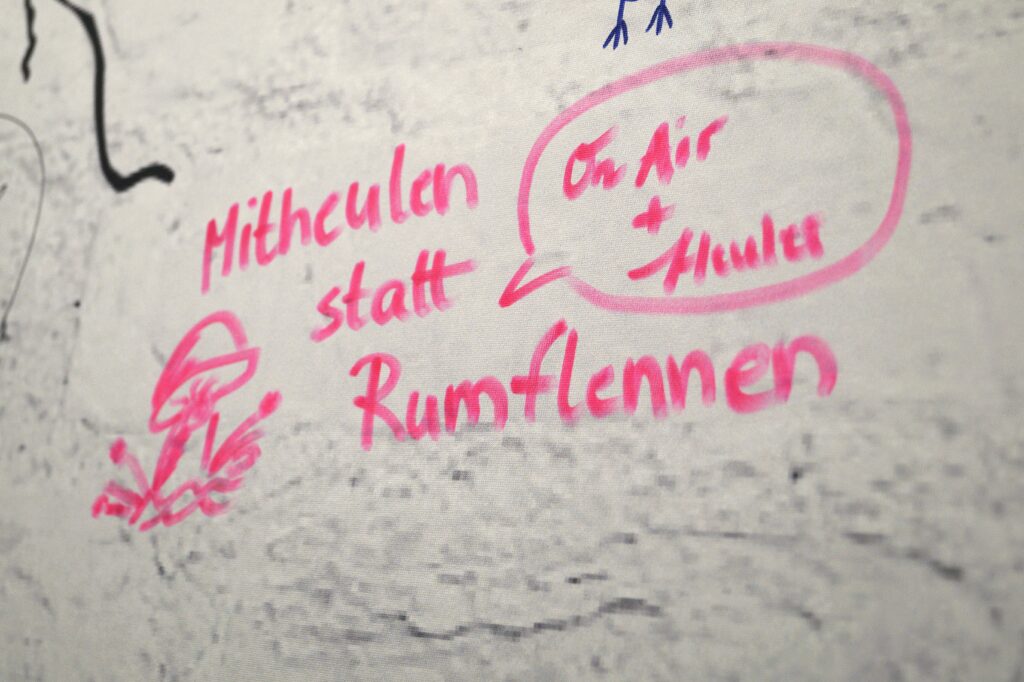 Mitheulen
statt
Rumflennen
On Air
+